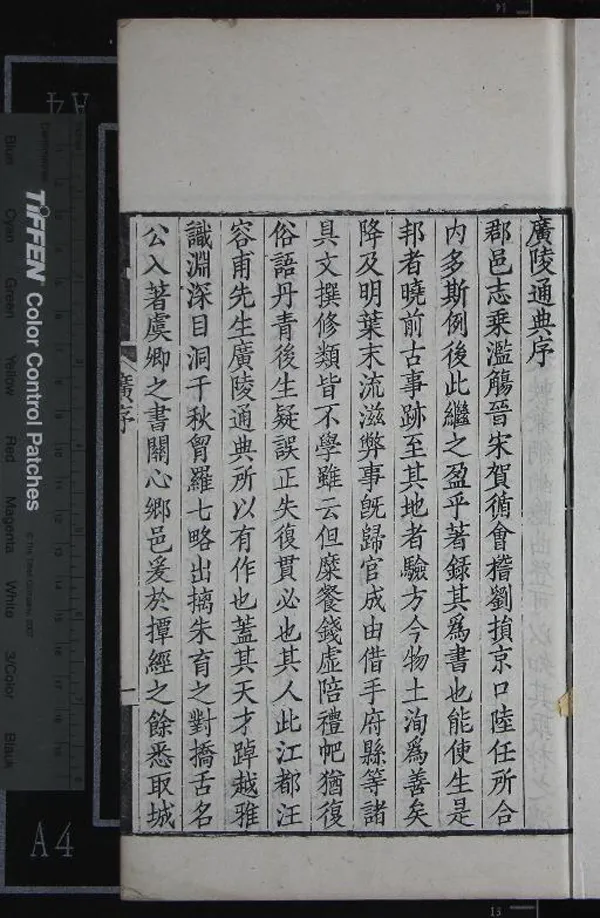 廣陵通典序
郡邑志乘濫觴晉宋賀循會稽劉損京口陸任所合
内多斯例後此繼之盈乎著錄其爲書也能使生是
邦者曉前古事跡至其地者驗方今物土洵爲善矣
降及明葉末流滋弊事旣歸官成由借手府縣等諸
具文撰修類皆不學雖云但糜餐錢虛陪禮帊猶復
俗語丹青後生疑誤正失復貫必也其人此江都汪
容甫先生廣陵通典所以有作也蓋其天才踔越雅
識淵深目洞千秋胷羅七略出摛朱育之對撟舌名
公入著虞卿之書關心鄉邑爰於撢經之餘悉取城
廣序
一
TIFFEN Color Control Patches
© The Tiffen Company, 2007
Centimetres
Blue Cyan Green Yellow Red Magenta White 3/Color Black
A4
A4
13